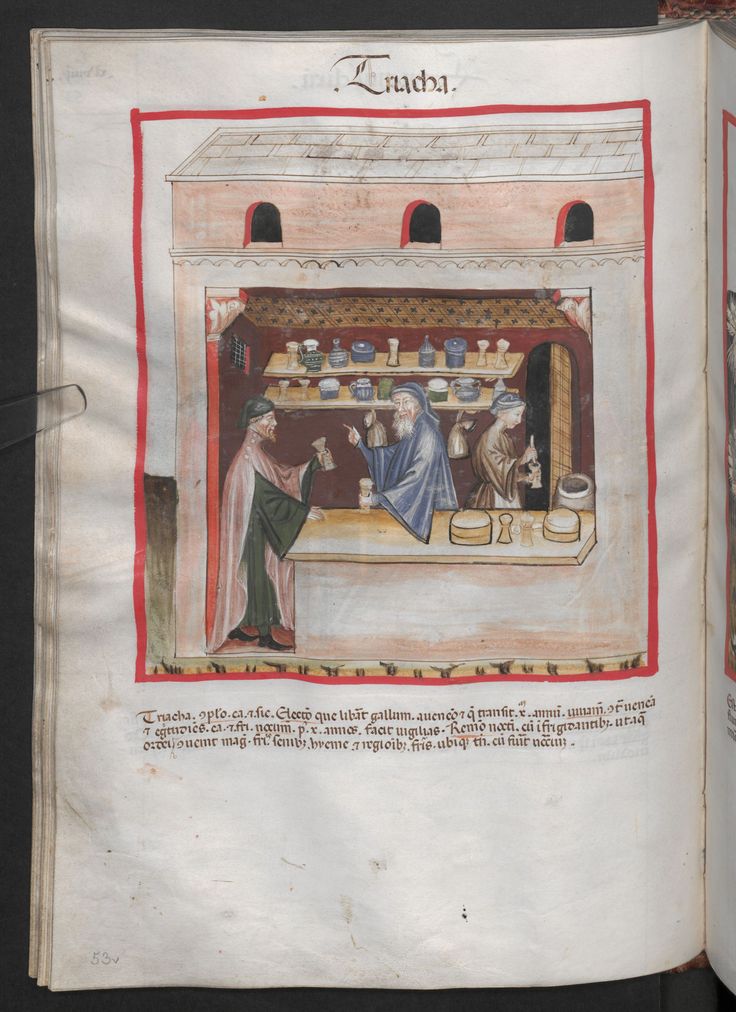 .Triacha.
Triacha. ꝯpło. ca. ⁊ sic. Electō que libāt gallum. a ueneō ⁊ q̄ transit .x. annū. iuuam̄. ꝯt̄ uenēa
⁊ egͥtudiēs. ca. ⁊ fri. nocum̄. pͥ .x. annos. facit uigilias. Remō nocti. cū ifrigidantibꝫ. ut aq̄
ordei ꝯuenit maḡ. friͥˢ senibꝫ. hyeme ⁊ regioībꝫ. friͥˢ. ubiqꝫ tn̄. cū fiunt
53v